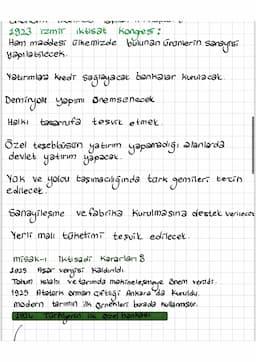 1923 izmir iktisat kongesi:
Ham maddesi ülkemizde bulunan ürünlerin sanayisi
yapılabilecek.
Yatırımlara kredi sağlayacak bankalar kurulacak.
Demiryolu yapımı önemsenecek
Halkı tasarrufa tesvik etmek.
Özel teşebbüsün yatırım yapamadığı alanlarda
devlet yatırım yapacak.
Yük ve yolcu taşımacılığında türk gemileri tercih
edilecek.
Sanayileşme ve fabrika kurulmasına destek verilecek
Yerli malı tüketimi teşvik edilecek.
misak-ı iktisadi kararları
1925 Aşar vergisi kaldırıldı.
Tohum ıslahı ve tarımda makineleşmeye önem verildi.
1925 Atatürk orman çiftliği Ankara'da kuruldu.
modern tarımın ilk örnekleri burada kullanılmıştır.
Türkiyenin ilk özel bankası